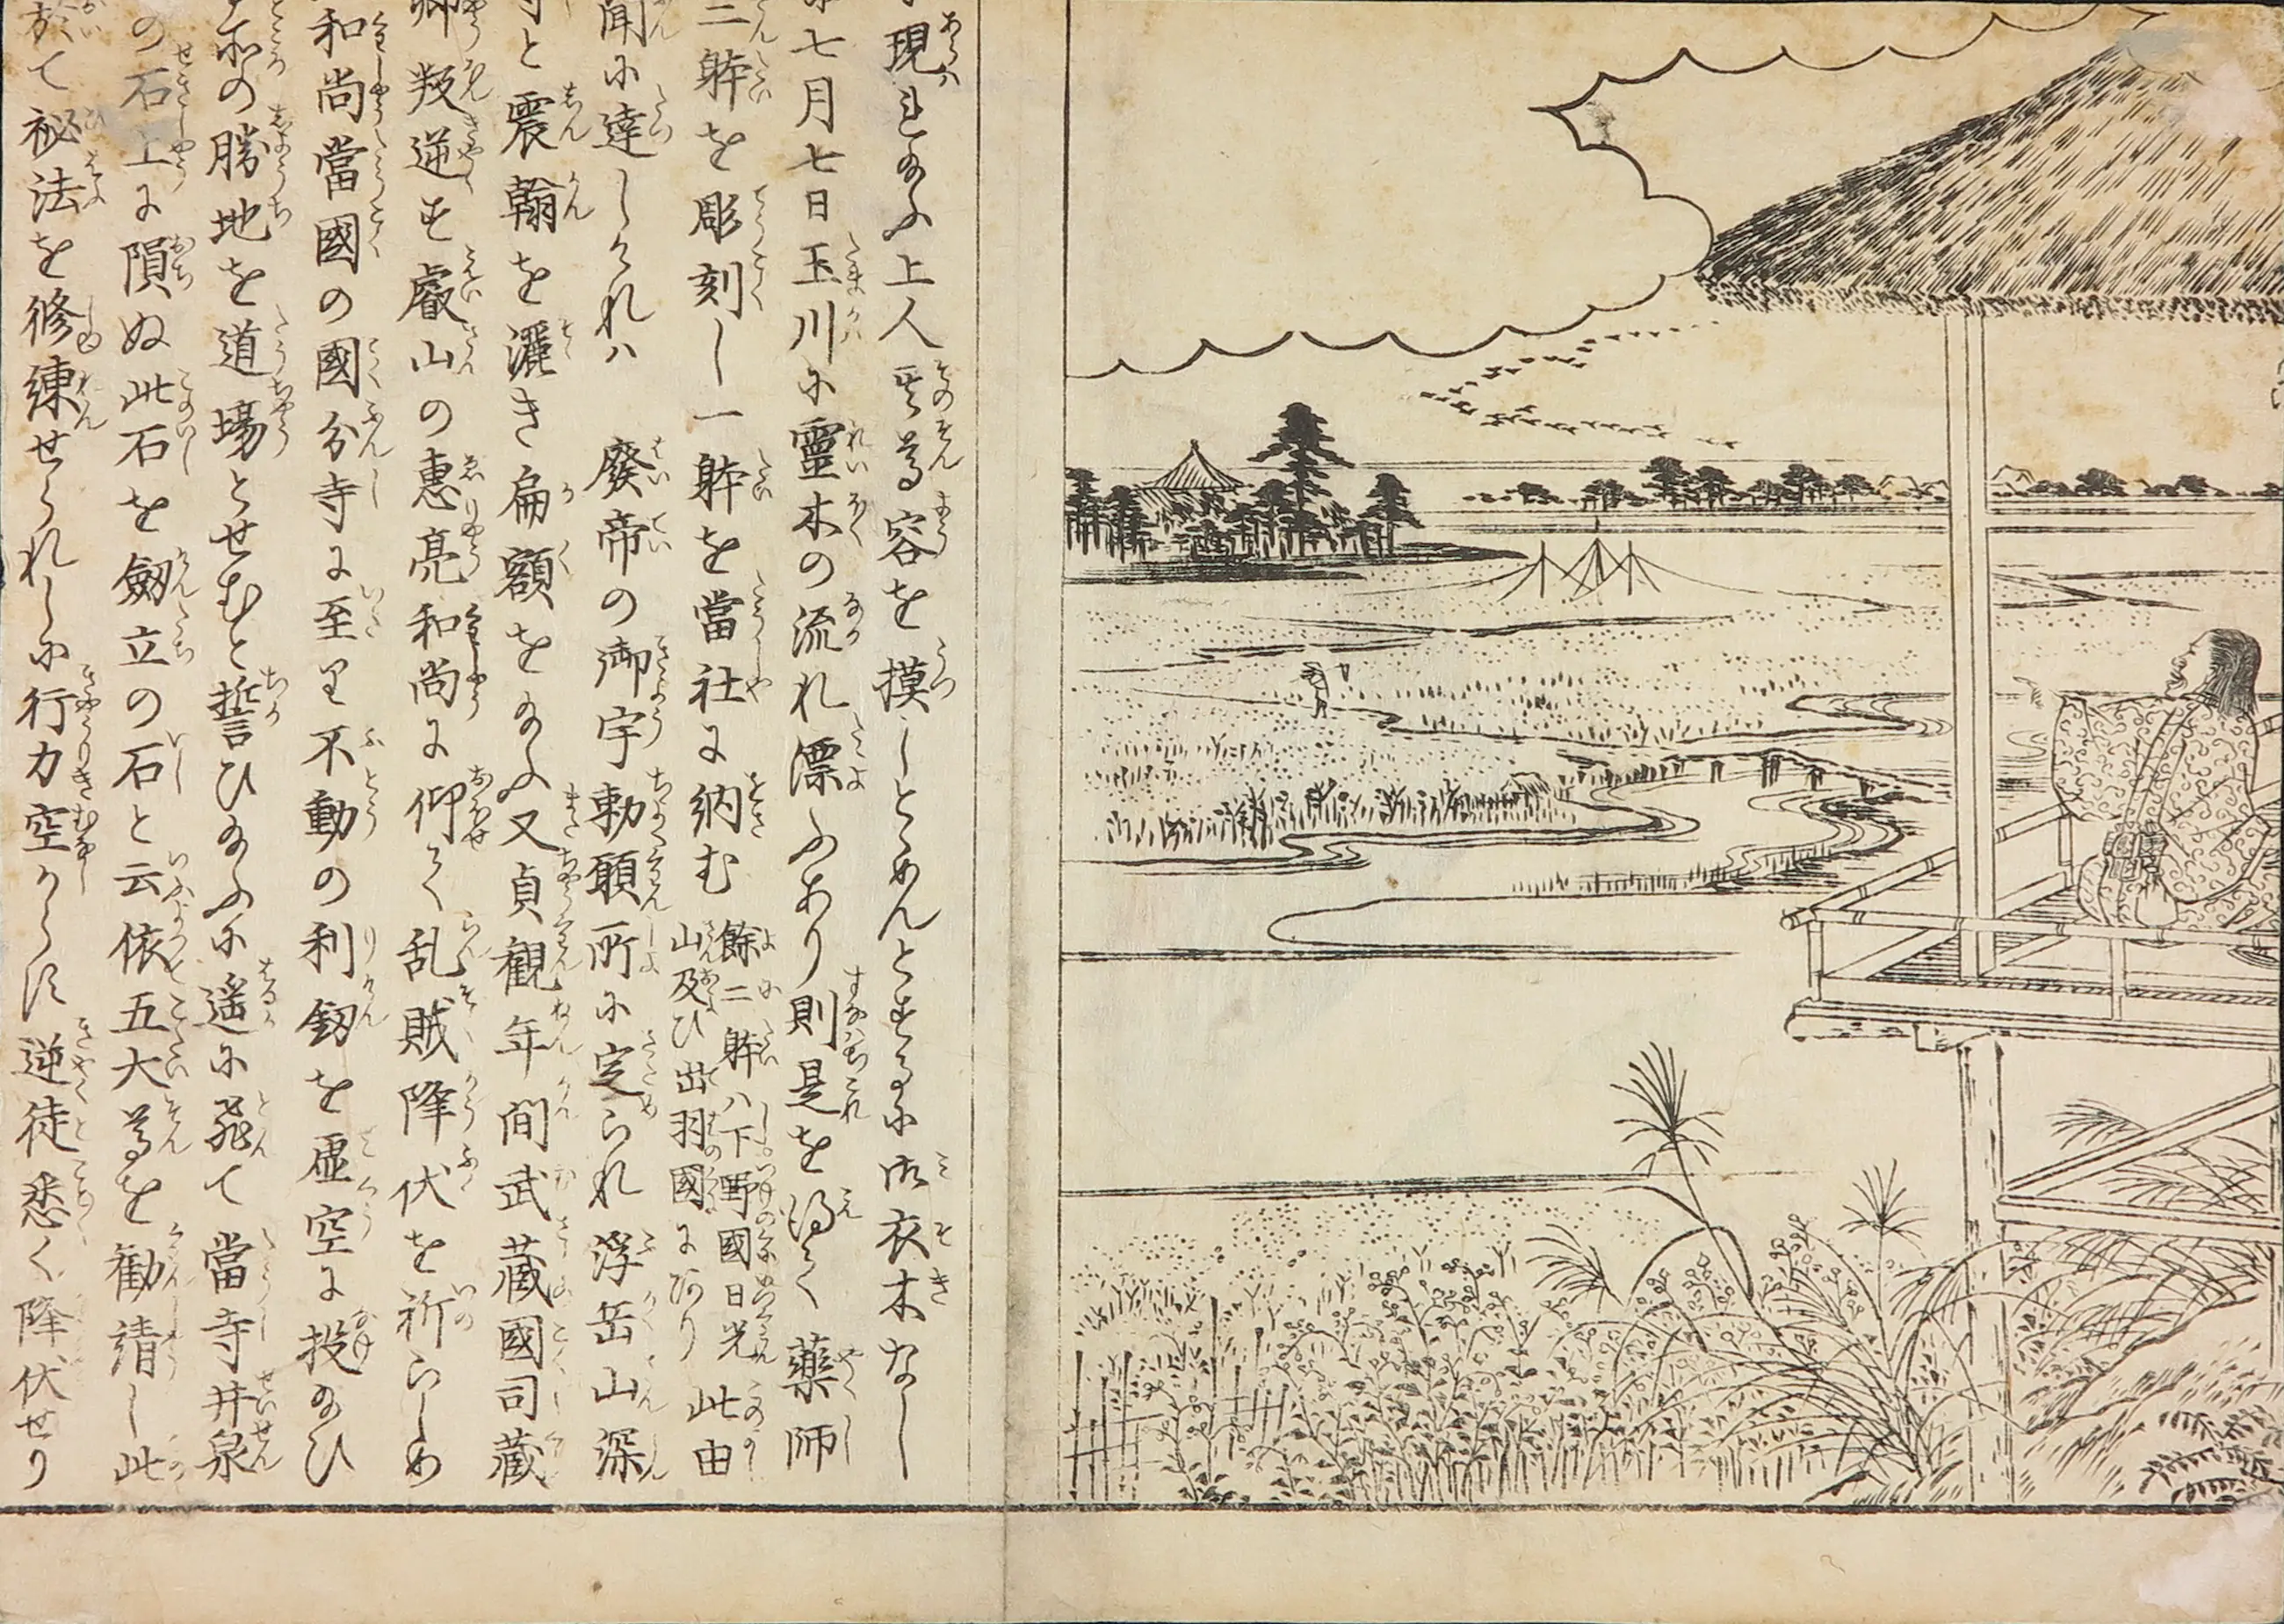 現れ給ふ上人其尊容を摸しとゞめんとするに御衣木なし
七月七日玉川に靈木の流れ漂ふあり則是を得て藥師
二躰を彫刻し一躰を當社に納む餘二躰ハ下野國日光山及ひ出羽國にあり此由
聞に達しけれハ 廢帝の御宇勅願所に定られ浮岳山深
と震翰を灑き扁額を給ふ又貞観年間武藏國司藏
卿叛逆す叡山の惠亮和尚に仰て乱賊降伏を祈らしめ
和尚當國の國分寺に至り不動の利釼を虚空に投給ひ
所の勝地を道場とせむと誓ひ給ふに遥に飛て當寺井泉
の石上に隕ぬ此石を劔立の石と云依五大尊を勧請し此
於て祕法を修練せられしに行力空からす逆徒悉く降伏せり